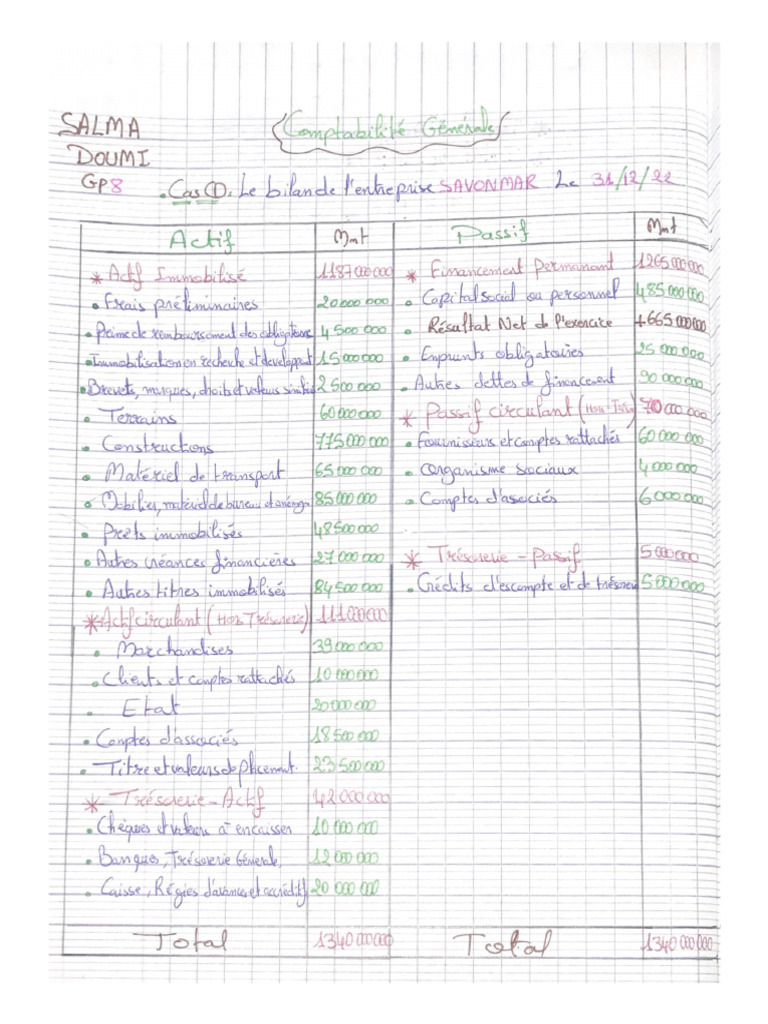 SALMA
DOUMI
GP8
Comptabilité Générale
. Cas ①. Le bilan de l'entreprise SAVONMAR Le 31/12/22
Actif Mmt Passif Mmt
* Actif Immobilisé 1187000000 * Financement Permanant 1265000000
• Frais préliminaires 20000 000 • Capital social ou personnel 485000000
• Prime de remboursement des obligations 4 500 000 • Résultat Net de l'exercice +665000000
• Immobilisation en recherche et developpmt 15000 000 • Emprunts obligatoires 25 000 000
• Brevets, marques, droits et valeurs similai 2 500 000 • Autres dettes de financement 90 000 000
• Terrains 60000 000 * Passif circulant (Hors-Tréso) 70 000 000
• Constructions 775 000 000 • Fournisseurs et comptes rattachés 60 000 000
• Matériel de transport 65 000 000 • Organisme sociaux 4 000 000
• Mobilier, matériel de bureau et aménage 85 000 000 • Comptes d'associés 6000 000
• Prêts immobilisés 48500 000
• Autres créances financières 27 000 000 * Trésorerie - Passif 5 000000
• Autres titres immobilisés 84 500 000 • Crédits d'escompte et de trésorerie 5 000000
* Actif circulant (Hors Trésorerie) 111000000
• Marchandises 39 000 000
• Clients et comptes rattachés 10 000 000
. Etat 20000 000
• Comptes d'associés 18 500 000
• Titre et valeurs de placement. 23 500 000
* Trésorerie - Actif 42 000 000
• Chèques et valeurs à encaisser 10 000 000
• Banques, Trésorerie Générale, 12 000 000
• Caisse, Régies d'avances et accréditif 20 000 000
Total 1340 000000 Total 1340 000 000